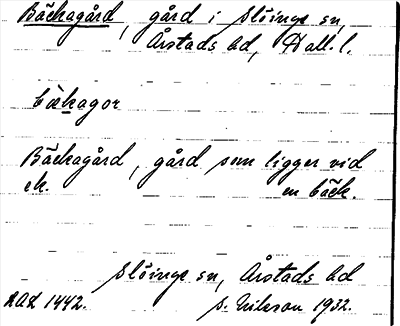 Bäckagård, gård i Slöinge sn,
Årstads hd, Hall. l.
bækagor
Bäckagård, gård som ligger vid
en bäck.
Slöinge sn, Årstads hd
1442. S. Nilsson 1932.